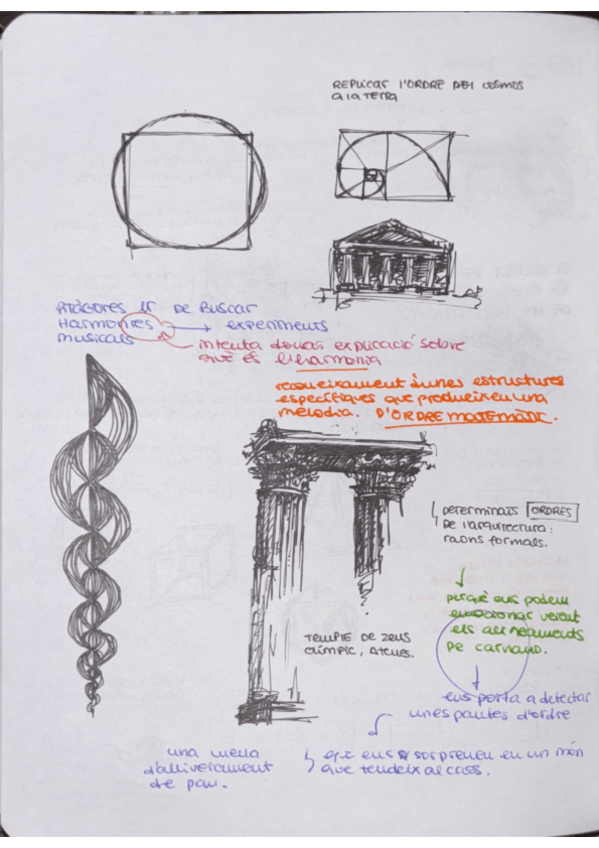 REPLICAR l'ORDRE DEL COSMOS
A LA TERRA
PITÀGORES DE BUSCAR
HARMONIES experiments
musicals
intenta donar explicació sobre
què és l'harmonia
reconeixement d'unes estructures
específiques que produeixen una
melodia. D'ORDRE MATEMÀTIC.
determinats ORDRES
De l'arquitectura:
raons formals.
perquè ens podem
emocionar veient
els alineaments
de carnac.
TEMPLE DE ZEUS
OLÍMPIC, Atenes.
ens porta a detectar
unes pautes d'ordre
una mena
d'alliberament
de pau.
que ens sorprenen en un món
que tendeix al caos.